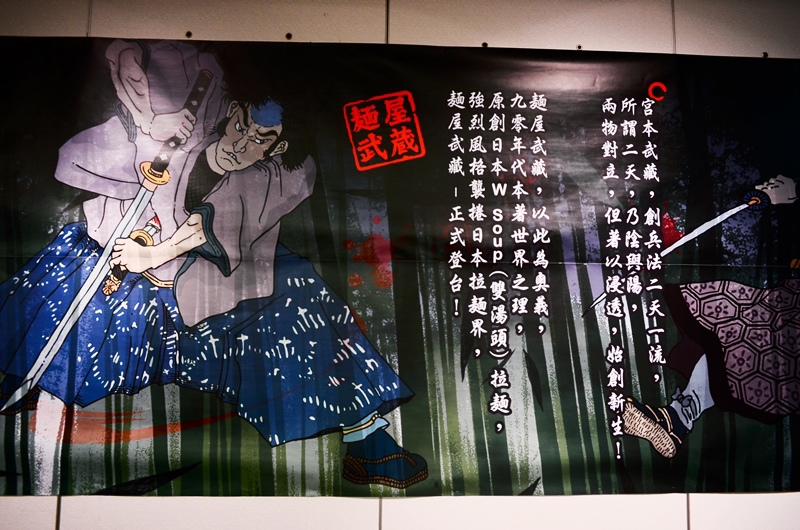 宮本武藏，創兵法二天一流，
所謂二天，乃陰與陽，
兩物對立，但著以浸透，始創新生！
麵屋武藏，以此為奧義，
九零年代本著世界之理，
原創日本W Soup(雙湯頭)拉麵，
強烈風格襲捲日本拉麵界，
麵屋武藏－正式登台！
麺屋
武蔵